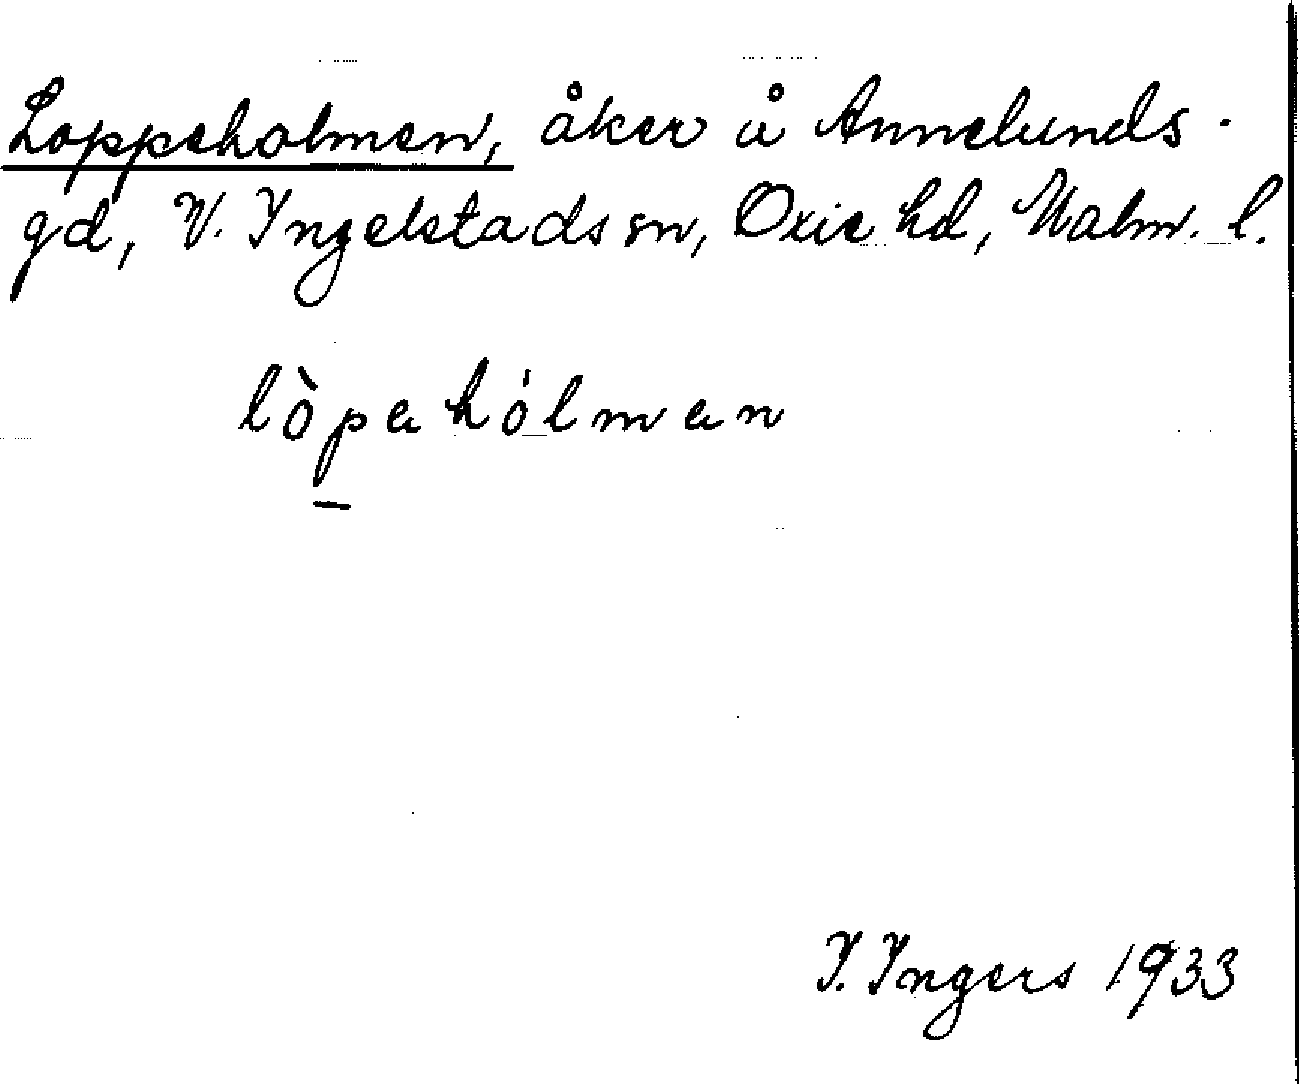 Loppeholmen, åker å Annelunds-
gd, V. Ingelstads sn, Oxie hd, Malm. l.
lòpahólman
I. Ingers 1933